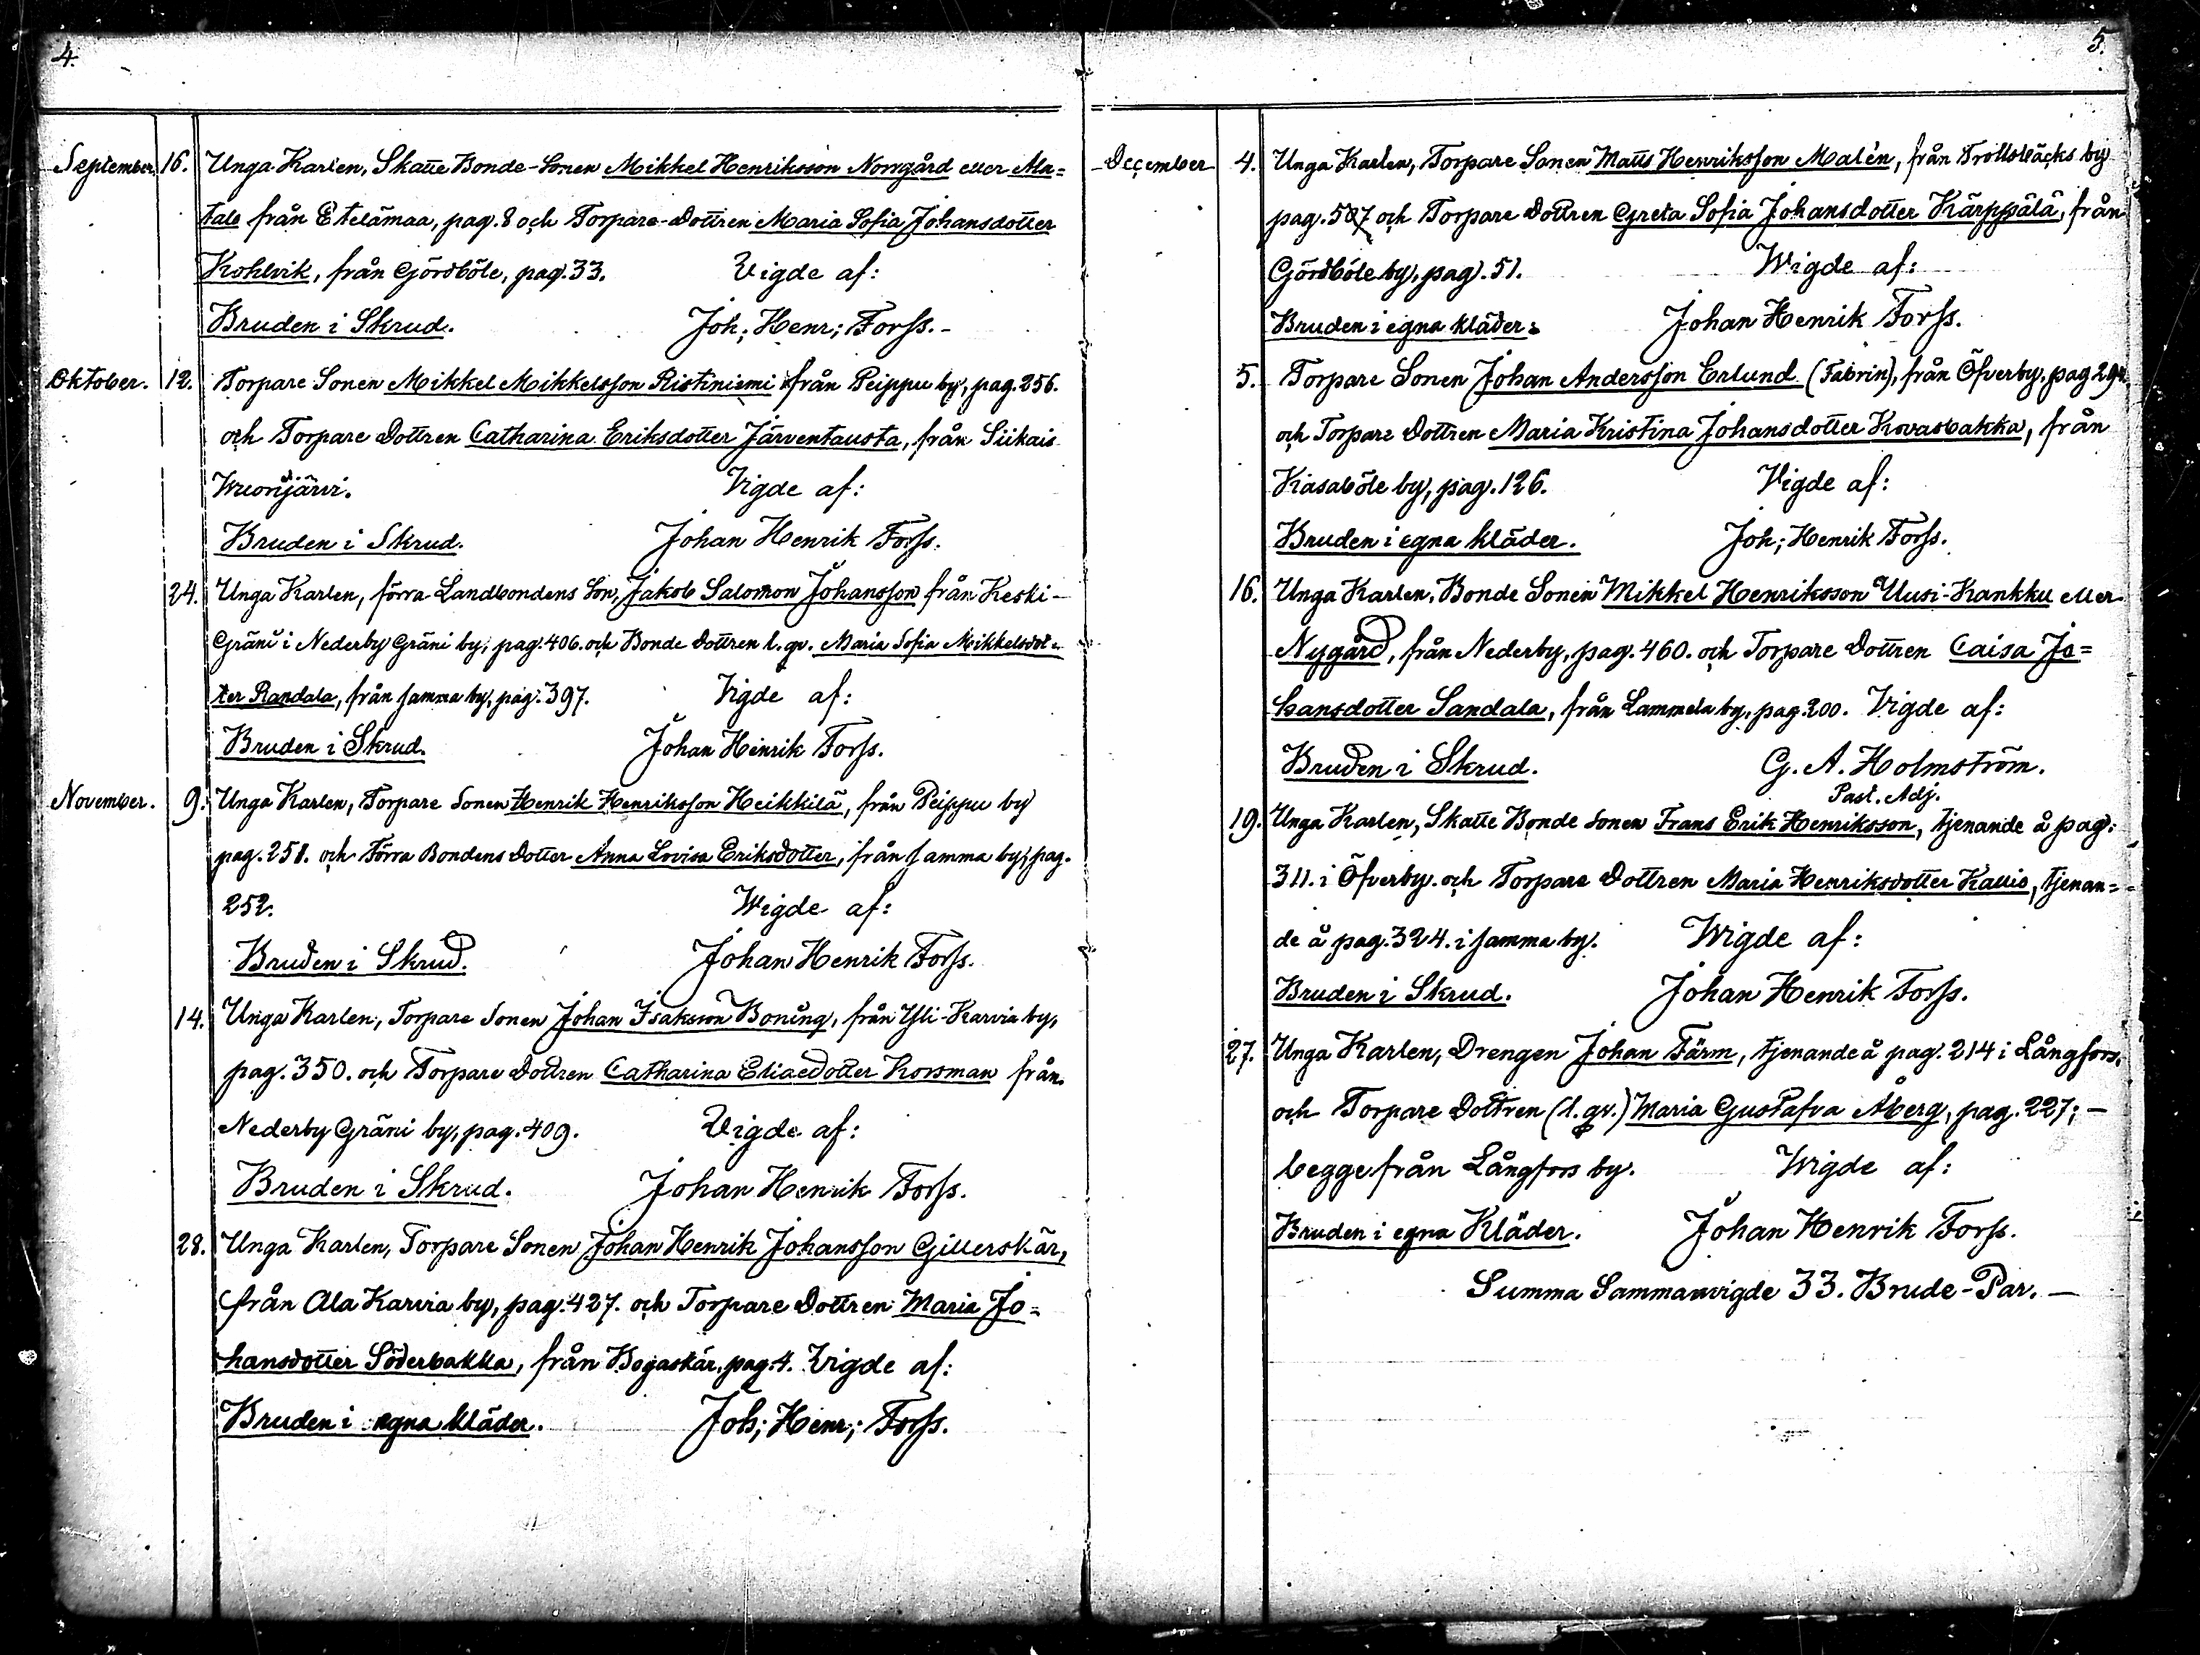 4.
September 16. Unga Karlen, Skatte Bonde-Sonen Mikkel Henriksson Norrgård eller Ala=
talo från Etelämaa, pag. 8 och Torpare-Dottren Maria Sofia Johansdotter
Kohlvik, från Gördböle, pag. 33. Vigde af:
Bruden i Skrud. Joh; Henr; Forss.-
Oktober. 12. Torpare Sonen Mikkel Mikkelsson Ristiniemi från Peippu by, pag. 256.
och Torpare Dottren Catharina Eriksdotter Järventausta, från Siikais
Wuorijärvi. Vigde af:
Bruden i Skrud. Johan Henrik Forss.
24. Unga Karlen, förra Landbondens Son, Jakob Salomon Johansson från Keski-
Gräni i Nederby Gräni by, pag. 406. och Bonde Dottren l. qv. Maria Sofia Mikkelsdot=
ter Randala, från samma by, pag. 397. Vigde af:
Bruden i Skrud. Johan Henrik Forss.
November. 9. Unga Karlen, Torpare Sonen Henrik Henriksson Heikkilä, från Peippu by
pag. 258. och Förra Bondens Dotter Anna Lovisa Eriksdotter, från samma by, pag.
252. Wigde af:
Bruden i Skrud. Johan Henrik Forss.
14. Unga Karlen, Torpare Sonen Johan Isaksson Boning, från Yli-Karvia by,
pag. 350. och Torpare Dottren Catharina Eliaedotter Korsman från
Nederby Gräni by, pag. 409. Vigde af:
Bruden i Skrud. Johan Henrik Forss.
28. Unga Karlen, Torpare Sonen Johan Henrik Johansson Gillerskär,
från Ala Karvia by, pag. 427. och Torpare Dottren Maria Jo=
hansdotter Söderbakka, från Bogaskär, pag. 4. Vigde af:
Bruden i egna kläder. Joh; Henr; Forss.
5.
December 4. Unga Karlen, Torpare Sonen Matts Henriksson Malén, från Trollsbäcks by
pag. 507 och Torpare Dottren Greta Sofia Johansdotter Kärppälä, från
Gördböle by, pag. 51. Wigde af:
Bruden i egna kläder. Johan Henrik Forss.
5. Torpare Sonen Johan Andersson Erlund (Fabrin), från Öfverby, pag 294.
och Torpare Dottren Maria Kristina Johansdotter Kovasbakka, från
Kasaböle by, pag. 126. Vigde af:
Bruden i egna kläder. Joh; Henrik Forss.
16. Unga Karlen, Bonde Sonen Mikkel Henriksson Uusi-Kankku eller
Nygård, från Nederby, pag. 460. och Torpare Dottren Caisa Jo=
hansdotter Sandala, från Lammela by, pag. 200. Vigde af:
Bruden i Skrud. G. A. Holmström.
Past. Adj.
19. Unga Karlen, Skatte Bonde Sonen Frans Erik Henriksson, tjenande å pag:
311. i Öfverby. och Torpare Dottren Maria Henriksdotter Kallio, tjenan=
de å pag. 324. i samma by. Wigde af:
Bruden i Skrud. Johan Henrik Forss.
27. Unga Karlen, Drengen Johan Färm, tjenande å pag. 214 i Långfors.
och Torpare Dottren (l. qv.) Maria Gustafva Åberg, pag. 227; —
begge från Långfors by. Wigde af:
Bruden i egna Kläder. Johan Henrik Forss.
Summa Sammanvigde 33. Brude-Par. —